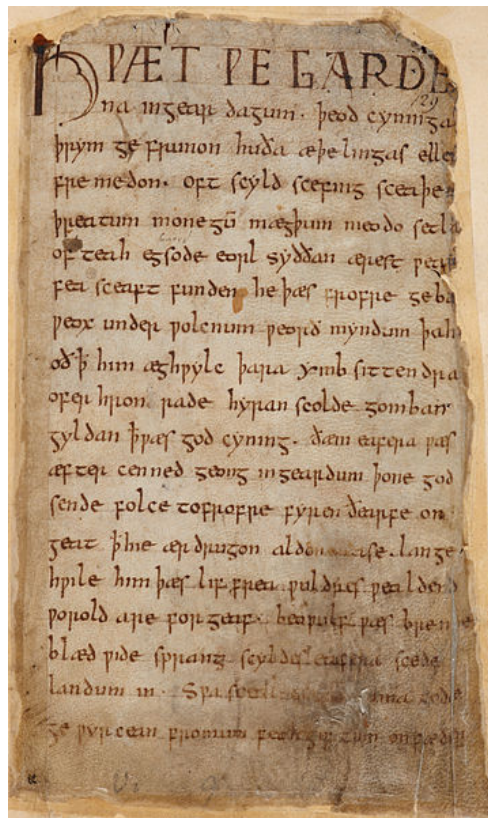 HǷÆT ǷE GARDE
na ingear dagum. þeod cyninga
þrym ge frunon huða æþelingas elle
fremedon. oft scyld scefing sceaþe
þreatum monegū mægþum meodo setla
of teah egsode eorl syððan ærest ƿear
fea sceaft funden he þæs frofre geba
ƿeox under ƿolcnum ƿeorð myndum þah
oð ꝥ him æghƿylc þara ymb sittendra
ofer hron rade hyran scolde gomban
gyldan ꝥ ƿæs god cyning. ðæm eafera ƿæs
æfter cenned geong ingeardum þone god
sende folce tofrofre fyren ðearfe on
geat ꝥ hie ær drugon aldor ase. lange
hƿile him þæs lif frea ƿuldres ƿealdend
ƿorold are for geaf. beoƿulf ƿæs breme
blæd ƿide sprang scyldes eafera scede
landum in. Sƿa sceal uma gode
ge ƿyrcean fromum feoh giftum on fæder
129